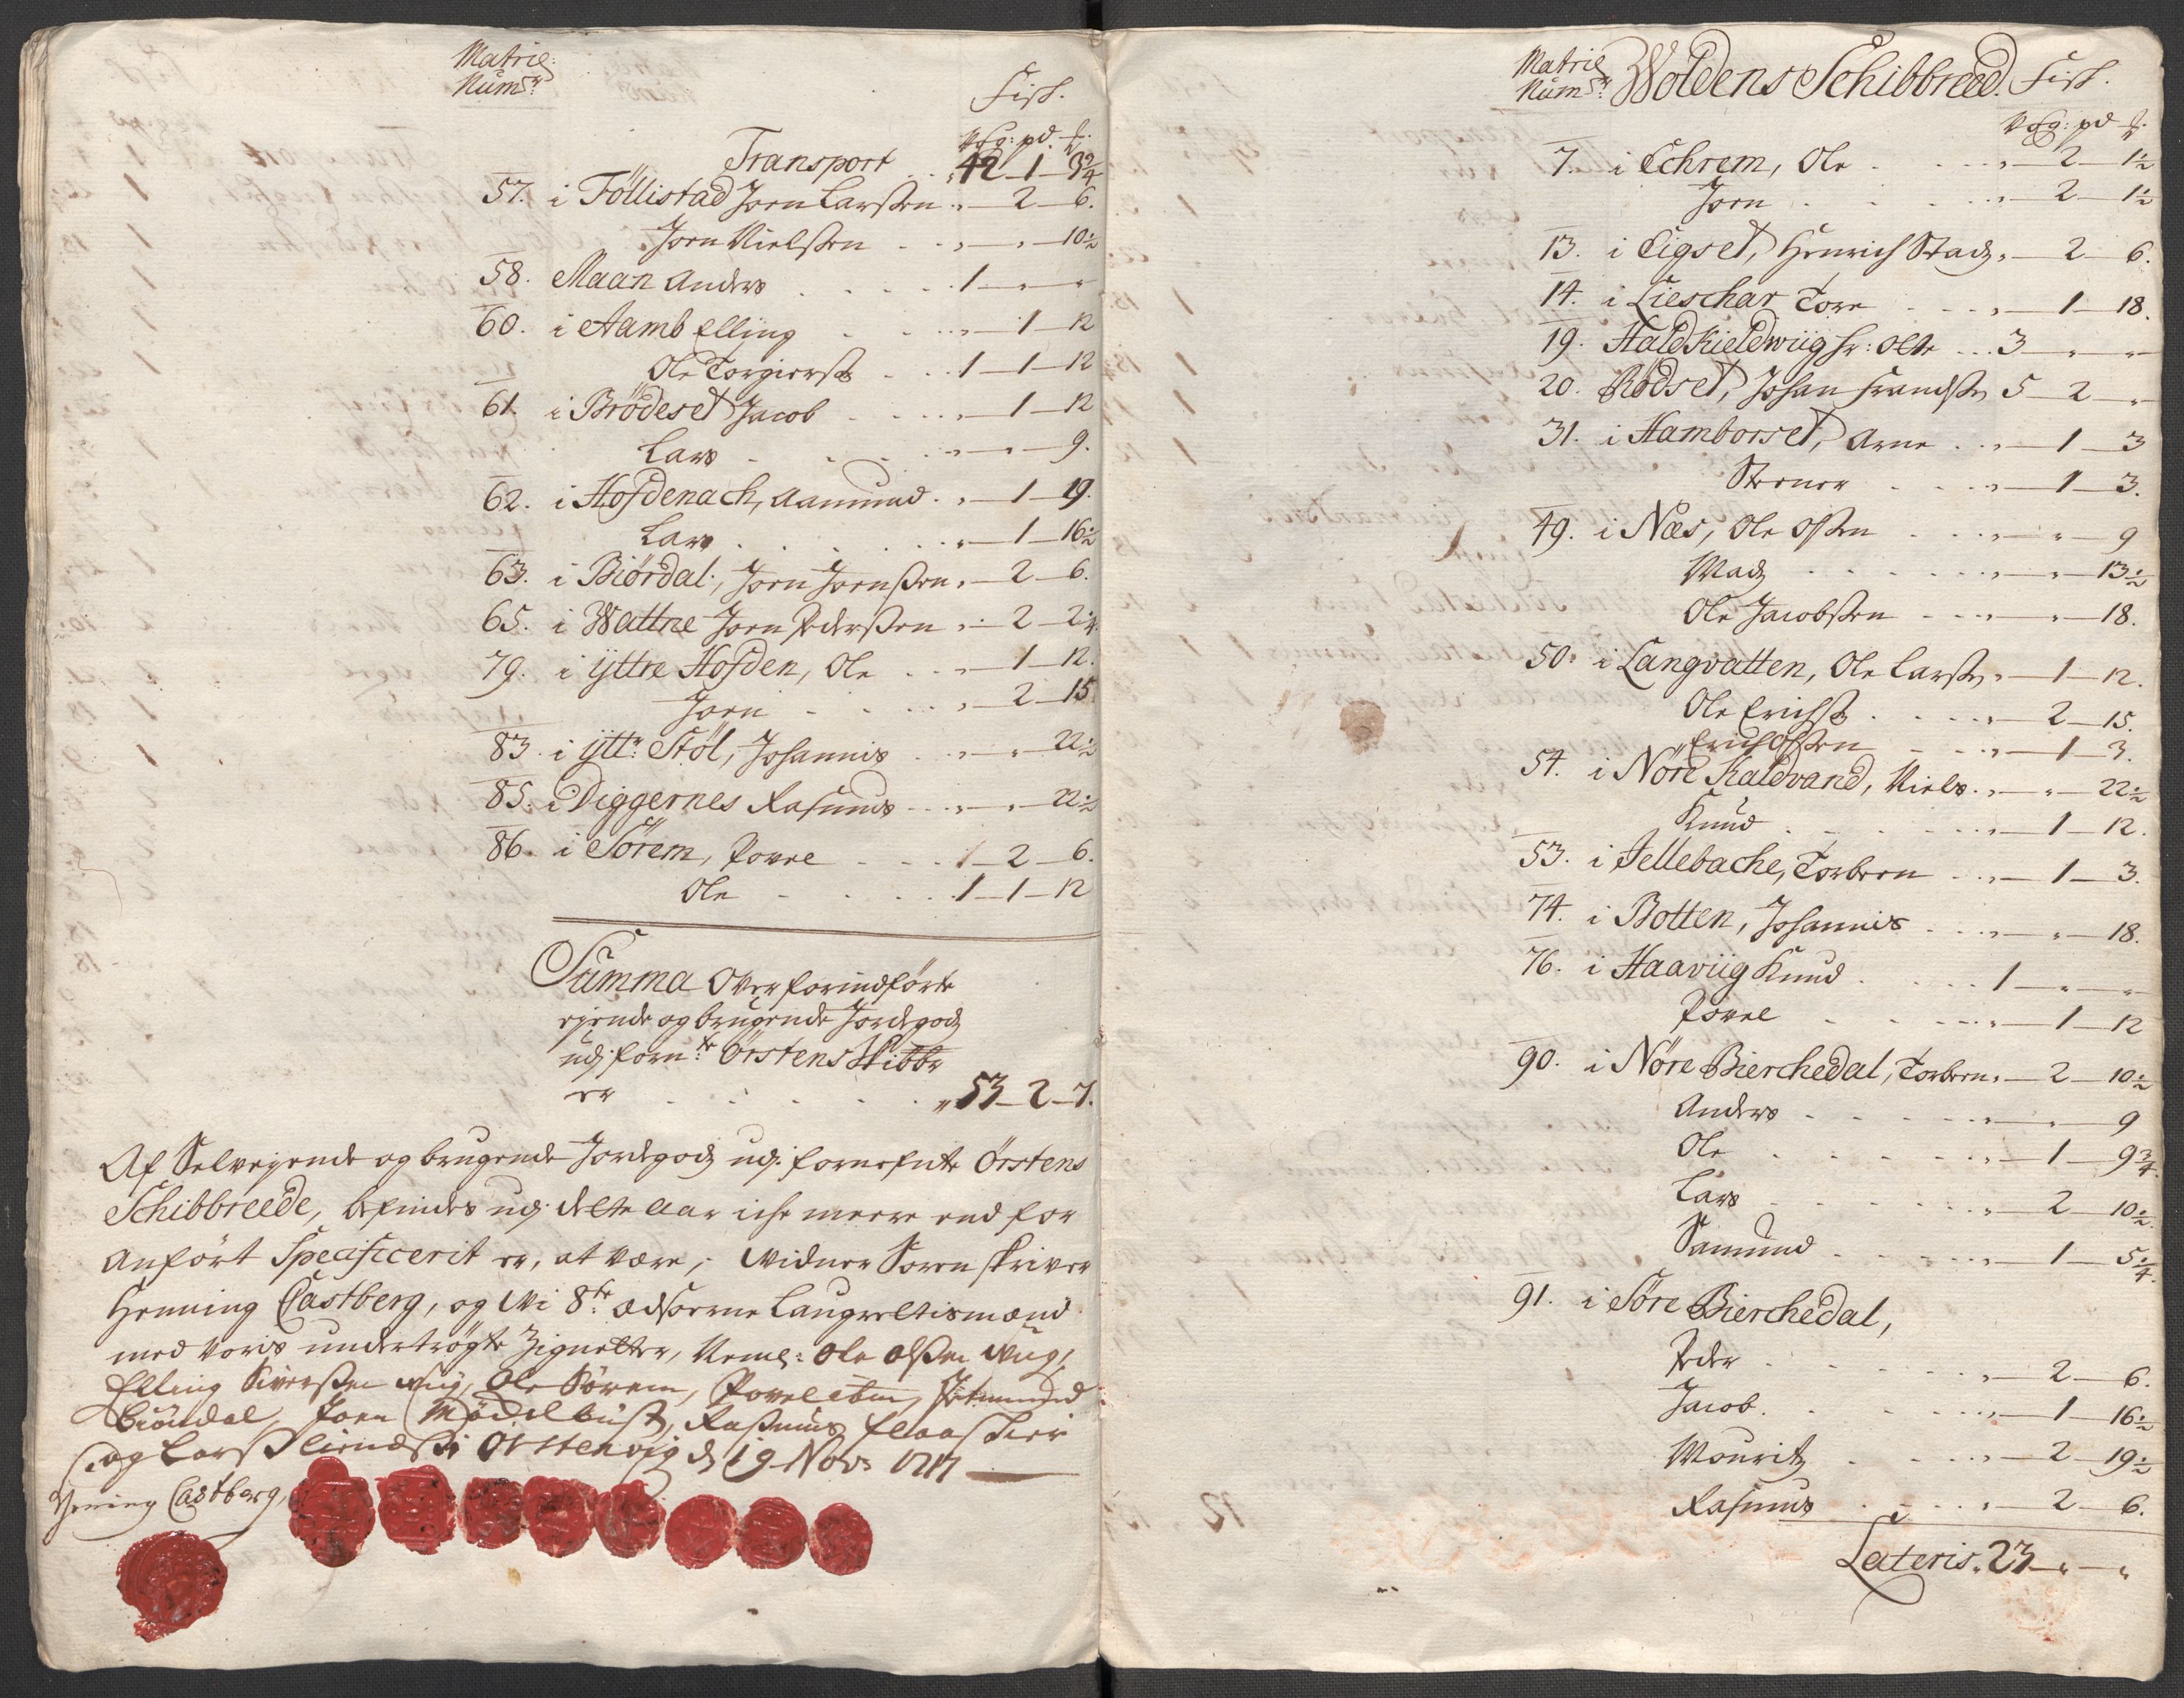 Matric:
Num:
Fisk.
Vog: pd. ℔.
Transport . . 42 — 1 — 3 3/4
57. i Föllistad Joen Larssen . „ — 2 — 6.
Joen Nielssen . . „ — „ — 10 1/2
58. Maan Anders . . . . 1 — „ — „
60. i Aamb Elling . . . „ — 1 — 12
Ole Torgierss . . . 1 — 1 — 12
61. i Brödeset Jacob . . . „ — 1 — 12
Lars . . . . „ — „ — 9.
62. i Hofdenach, Aamund . „ — 1 — 19.
Lars . . . . . „ — 1 — 16 1/2
63. i Biördal, Joen Joenssen „ — 2 — 6.
65. i Wattne Joen Pederssen „ — 2 — 2 1/4
79. i ÿttre Hofden, Ole . . „ — 1 — 12.
Joen . . . . „ — 2 — 15.
83. i ÿtt: Stöl, Johannis . . „ — „ — 22 1/2
85. i Diggernes Rasmus . . „ — „ — 22 1/2
86. i Sörem, Povel . . . 1 — 2 — 6.
Ole . . . . 1 — 1 — 12
Summa Over forindförte
eyende og brugende Jordegods
udj forn:te Örstens Skibbr
er . . . . . „ 53 — 2 — 7.
Af Selveyende og brugende Jordegods udj fornefnte Örstens
Schibbreede, befindes udj dette Aar iche meere end for
anfört Specificerit er, at være, Widner Sorenskriver
Henning Castberg, og Wi 8te Edsorne Laugrettismænd
med voris undertrögte Zignetter, Neml: Ole Olssen Wiig,
Elling Siverssen Wiig, Ole Sörem, Povel
Biöndal, Joen Mödelbust, Rasmus
og Lars Ørstenvig d 19 Nov: 1717
Hening Castberg,
Matric
Num:
Woldens Schibbreed.
Fisk.
Vog: pd ℔.
7. i Echrem, Ole . . . „ — 2 — 1 1/2
Joen . . . . „ — 2 — 1 1/2
13. i Eigset, Henrich Stads „ — 2 — 6.
14. i Lieschar Tore . . . „ — 1 — 18.
19. Hald Kieldwiig hr: Olte . . . 3 — „ — „
20. Rödset, Johan Frandss 5 — 2 — „
31. i Hamborset, Arne . . „ — 1 — 3
Stener . . . . „ — 1 — 3.
49. i Næs, Ole Olssen . . . „ — „ — 9
Mads . . . . . „ — „ — 13 1/2
Ole Jacobssen . . . „ — „ — 18.
50. i Langvatten, Ole Larss „ — 1 — 12.
Ole Erichss . . . . „ — 2 — 15.
Erich Olssen . . . „ — 1 — 3.
54. i Nöre Kaldvand, Niels . „ — „ — 22 1/2
Knud . . . . . „ — 1 — 12.
53. i Jellebache, Torbern . . „ — 1 — 3.
74. i Botten, Johannis . . . „ — „ — 18.
76. i Haaviig Knud . . . . 1 — „ — „
Povel . . . . „ — 1 — 12
90. i Nöre Bierchedal, Torbern „ — 2 — 10 1/2
Anders . . . . . „ — „ — 9
Ole . . . . . „ — 1 — 9 3/4
Lars . . . . . „ — 2 — 10 1/2
Samund . . . . „ — 1 — 5 1/4
91. i Söre Bierchedal,
Peder . . . . . „ — 2 — 6.
Jacob . . . . . „ — 1 — 16 1/2
Mouritz . . . . „ — 2 — 19 1/2
Rasmus . . . . „ — 2 — 6.
Lateris . 23 — „ — „